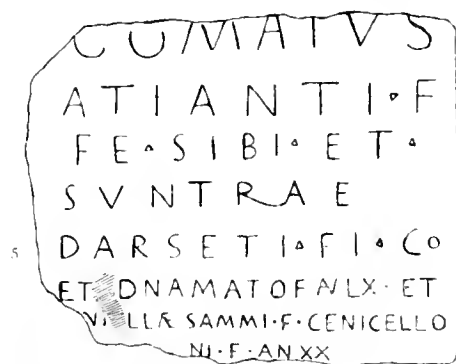 COMATVS
ATIANTI·F
FE·SIBI·ET·
SVNTRAE
DARSETI·FI·CO
ET DNAMATOFANLX·ET
SAMMI·F·CENICELLO
NI·F·AN.XX